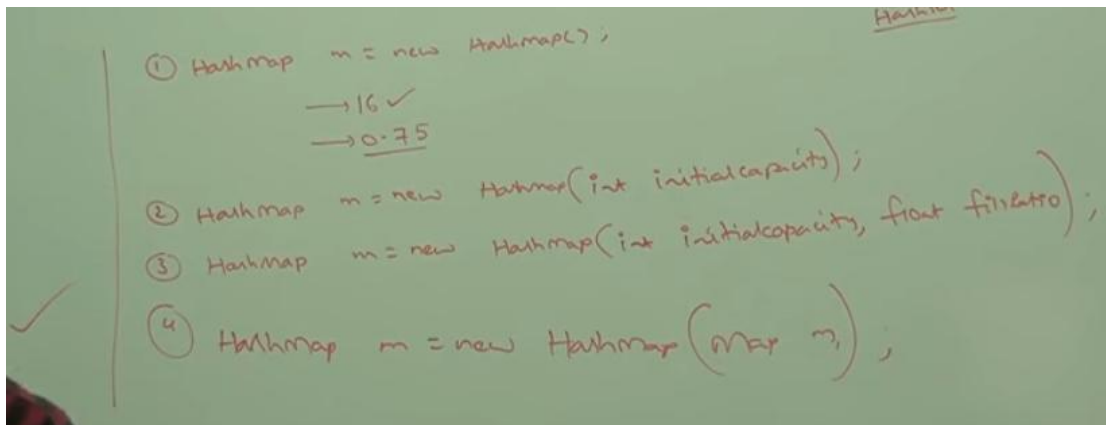 ① HashMap m = new HashMap();
→ 16 ✓
→ 0.75
② HashMap m = new HashMap(int initialcapacity);
③ HashMap m = new HashMap(int initialcapacity, float fillratio);
④ HashMap m = new HashMap(Map m);